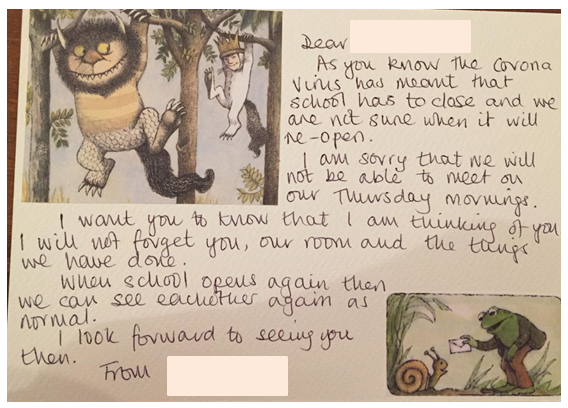 Dear
As you know the Corona
Virus has meant that
school has to close and we
are not sure when it will
re-open.
I am sorry that we will
not be able to meet on
our Thursday mornings.
I want you to know that I am thinking of you
I will not forget you, our room and the things
we have done.
When school opens again then
we can see eachother again as
normal.
I look forward to seeing you
then.
From